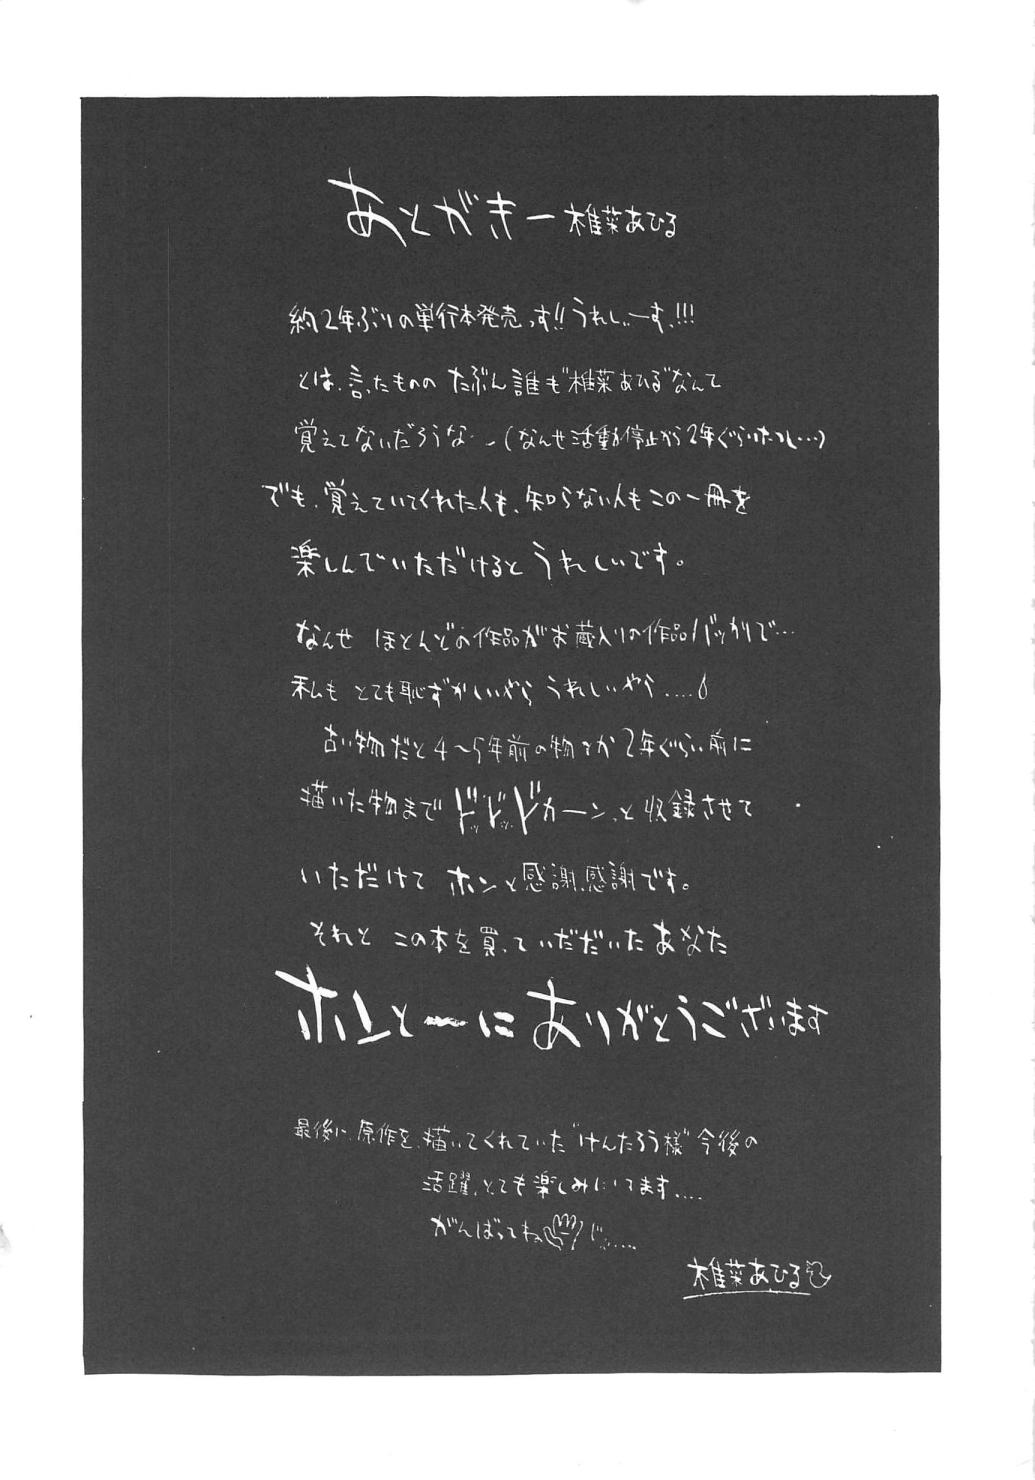 あとがきー椎菜あひる
約2年ぶりの単行本発売っす!!うれしぃーす、!!!
とは、言ったものの たぶん誰も"椎菜あひる"なんて
覚えてないだろうな…(なんせ活動停止から2年ぐらいたつし…)
でも、覚えていてくれた人も、知らない人もこの一冊を
楽しんでいただけると うれしいです。
なんせ ほとんどの作品がお蔵入りの作品バッカリで…
私も とても恥ずかしいやら うれしいやら....
古い物だと4〜5年前の物とか2年ぐらい前に
描いた物まで ドッドッドカーン、と 収録させて
いただけて ホンと感謝、感謝です。
それと この本を買っていだだいた あなた
ホンとーに ありがとうございます
最後に、原作を、描いてくれていた"けんたろう様"今後の
活躍、とても楽しみにしてます....
がんばってね じゃ.....
椎菜あひる